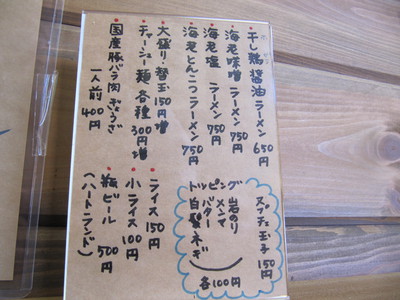 干し鶏醤油ラーメン 650円
海老味噌ラーメン 750円
海老塩ラーメン 750円
海老とんこつラーメン 750円
大盛り・替玉 150円増
チャーシュー麺 各種 300円増
国産豚バラ肉ぎょうざ
一人前 400円
トッピング
岩のり
メンマ
バター
白髪ネギ
各100円
ヌプチェ玉子 150円
ライス 150円
小ライス 100円
瓶ビール 500円
(ハートランド)